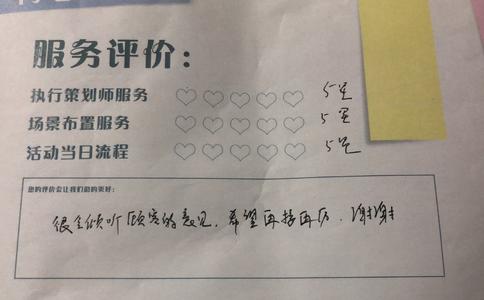 服务评价：
执行策划师服务 ♡ ♡ ♡ ♡ ♡ 5星
场景布置服务 ♡ ♡ ♡ ♡ ♡ 5星
活动当日流程 ♡ ♡ ♡ ♡ ♡ 5星
您的评价会让我们做的更好：
很会倾听顾客的意见，希望再接再厉，谢谢